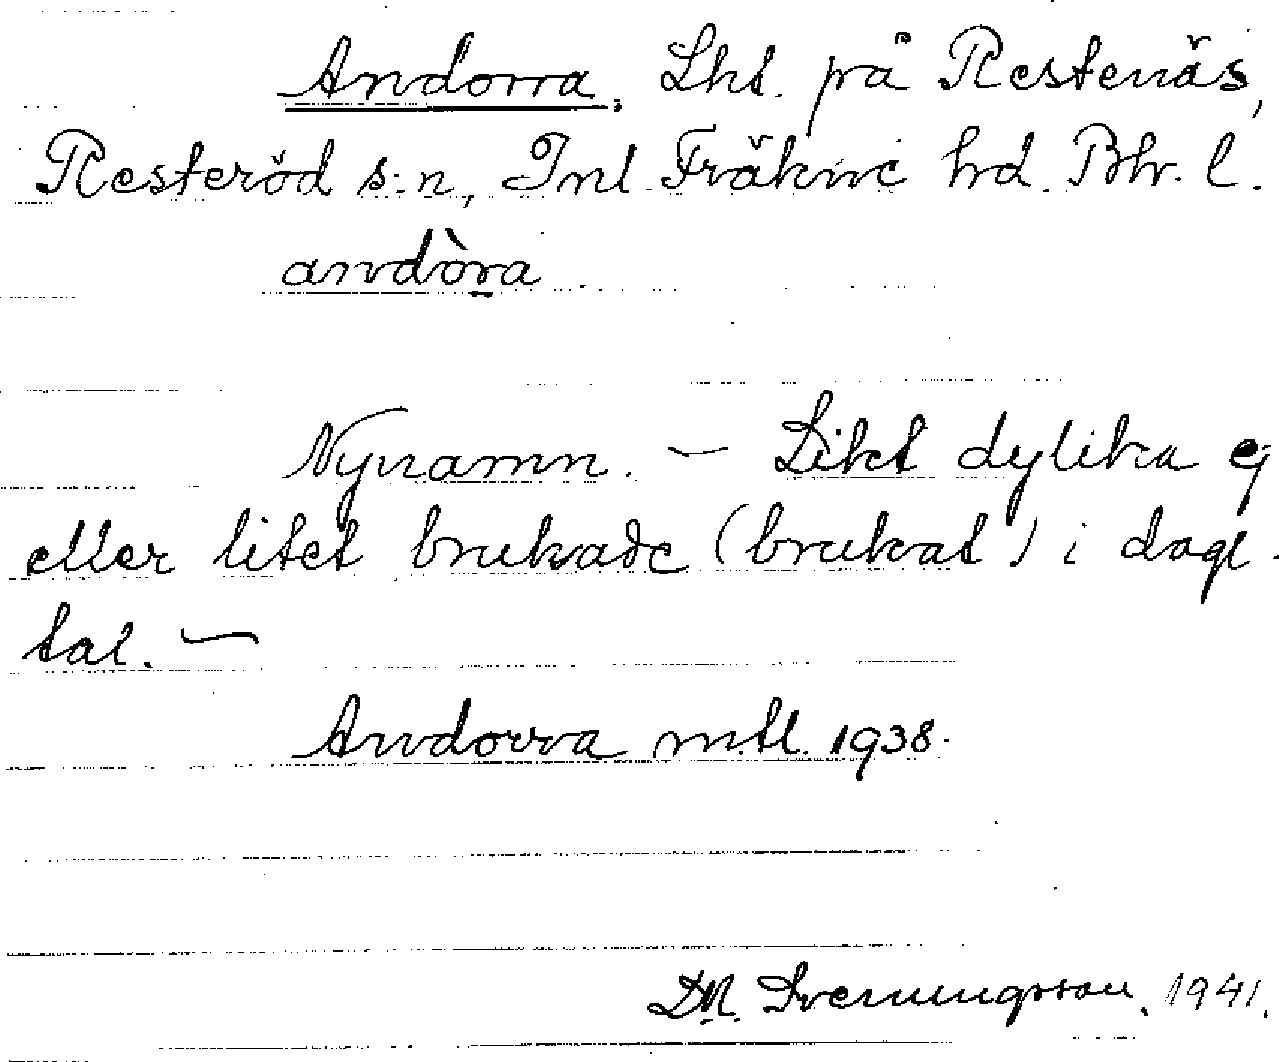 Andorra, Lht. på Restenäs,
Resteröd s:n, Inl. Fräkne hd. Bhr. l.
andòra
Nynamn. — Likt dylika ej
eller litet brukade (brukat) i dagl.
tal. —
Andorra m.tl. 1938.
D.N. Sverningsson. 1941.